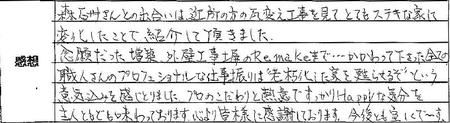 森石サんとの出会いは近所の方の瓦変え工事を見てとてもステキな家に
変化したことで紹介して頂きました。
念願だった増築、外壁工事、塀のRemakeまで…かかわって下さった全ての
感想
職人さんのプロフェショナルな仕事振りは"老朽化した家を甦らるぞ"という
意気込みを感じとりました。プロのこだわりと熱意ですっかりHappyな気分を
主人ともども味わっております。心より皆様に感謝しております。今後とも宜しくで〜す。